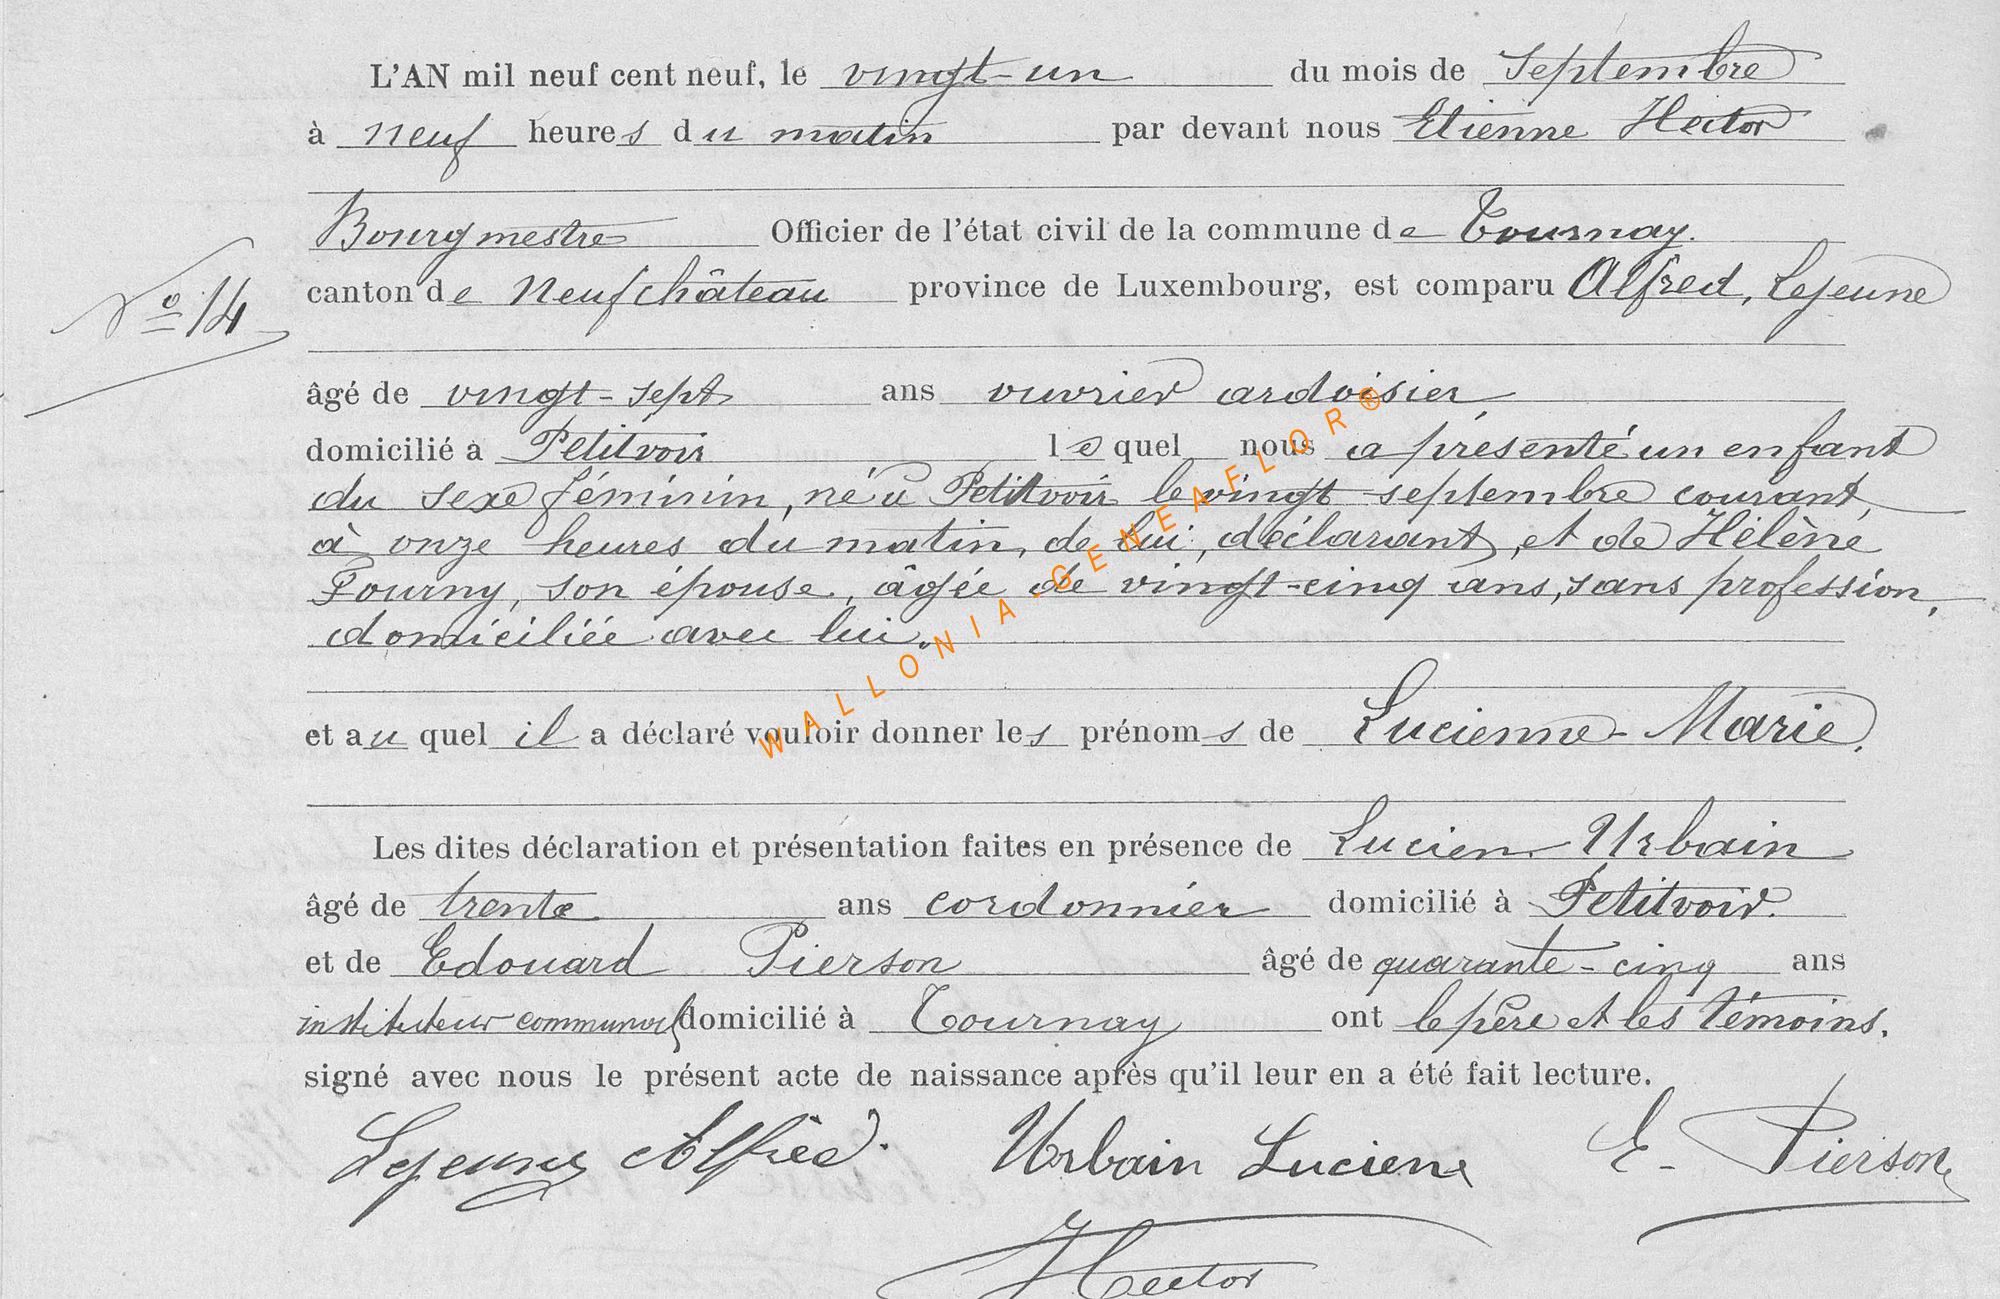 L'AN mil neuf cent neuf, le vingt-un du mois de Septembre
à neuf heures du matin par devant nous Etienne Hector
Bourgmestre Officier de l'état civil de la commune de Tournay.
N° 14
canton de Neufchâteau province de Luxembourg, est comparu Alfred, Lejeune
âgé de vingt-sept ans ouvrier ardoisier,
domicilié à Petitvoir lequel nous a présenté un enfant
du sexe féminin, né à Petitvoir le vingt septembre courant,
à onze heures du matin, de lui, déclarant, et de Hélène
Fourny, son épouse, âgée de vingt-cinq ans, sans profession,
domiciliée avec lui.
WALLONIA-GENEAFLOR®
et auquel il a déclaré vouloir donner les prénoms de Lucienne-Marie.
Les dites déclaration et présentation faites en présence de Lucien Urbain
âgé de trente ans cordonnier domicilié à Petitvoir.
et de Edouard Pierson âgé de quarante-cinq ans
instituteur communal domicilié à Tournay ont le père et les témoins,
signé avec nous le présent acte de naissance après qu'il leur en a été fait lecture.
Lejeune Alfred. Urbain Lucien E. Pierson
Hector